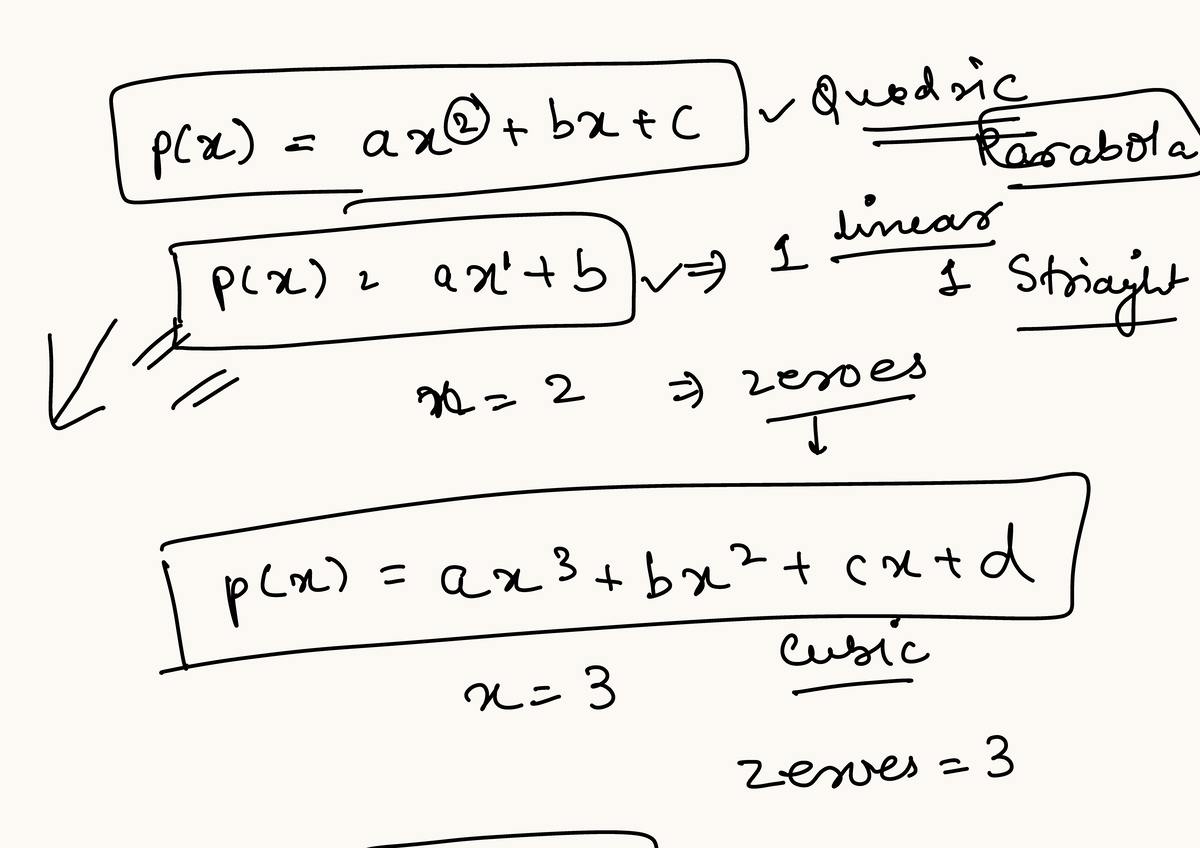 p(x) = ax² + bx + c ✓ Quadric
Parabola
p(x) = ax¹ + b ✓ ⇒ 1 linear
1 Striaght
x = 2 ⇒ zeroes
↓
p(x) = ax³ + bx² + cx + d
cubic
x = 3
zeroes = 3